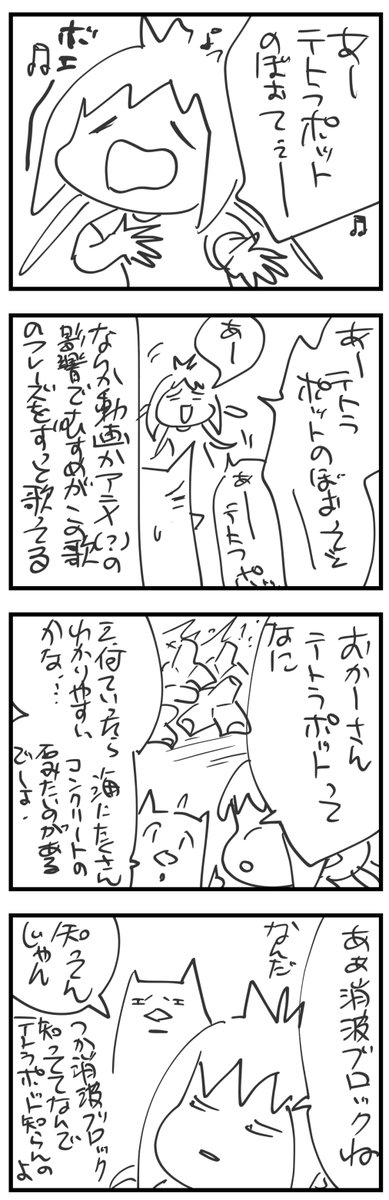 あー
テトラポット
のぼおてぇー
ボエ
あーテトラ
ポットのぼおってぇ
あー
あー
テトラポッ
なんか動画かアニメ(?)の
影響でむすめがこの歌
のフレーズをずっと歌ってる
おかーさん
テトラポットって
なに
え、何ていったら
わかりやすい
かな…
海にたくさん
コンクリートの
石みたいのがある
でしょ…
あぁ消波ブロックね
なんだ
知ってん
じゃん
つか消波ブロック
知っててなんで
テトラポット知らんの
よ